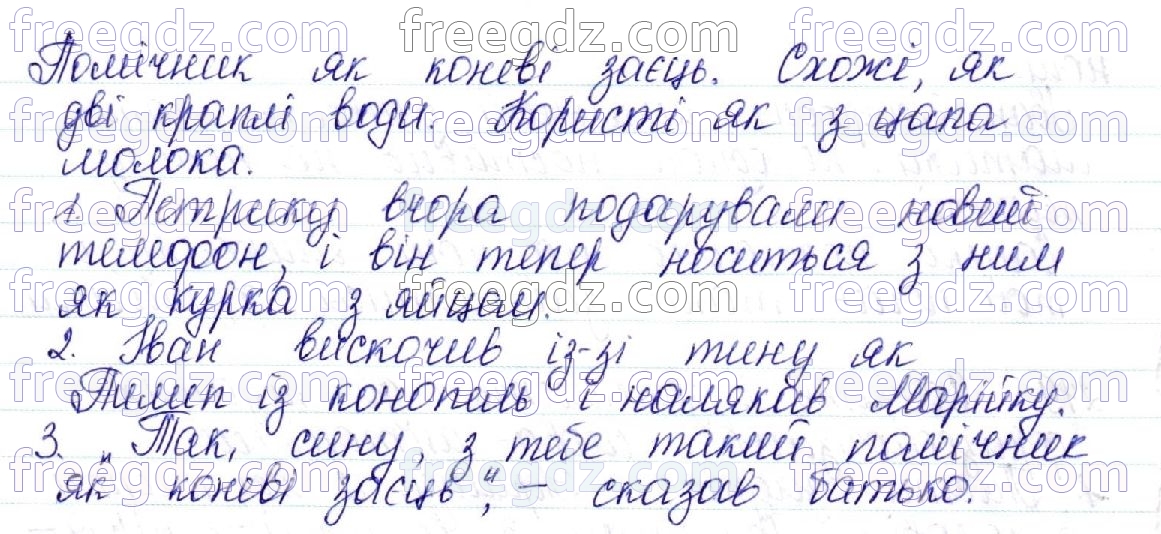 Помічник як коневі заєць. Схожі, як
дві краплі води. Користі як з цапа
молока.
1. Петрику вчора подарували новий
телефон, і він тепер носиться з ним
як курка з яйцом.
2. Іван вискочив із-зі тину як
Пилип із конопель і налякав Марійку.
3. „Так, сину, з тебе такий помічник
як коневі заєць", – сказав батько.